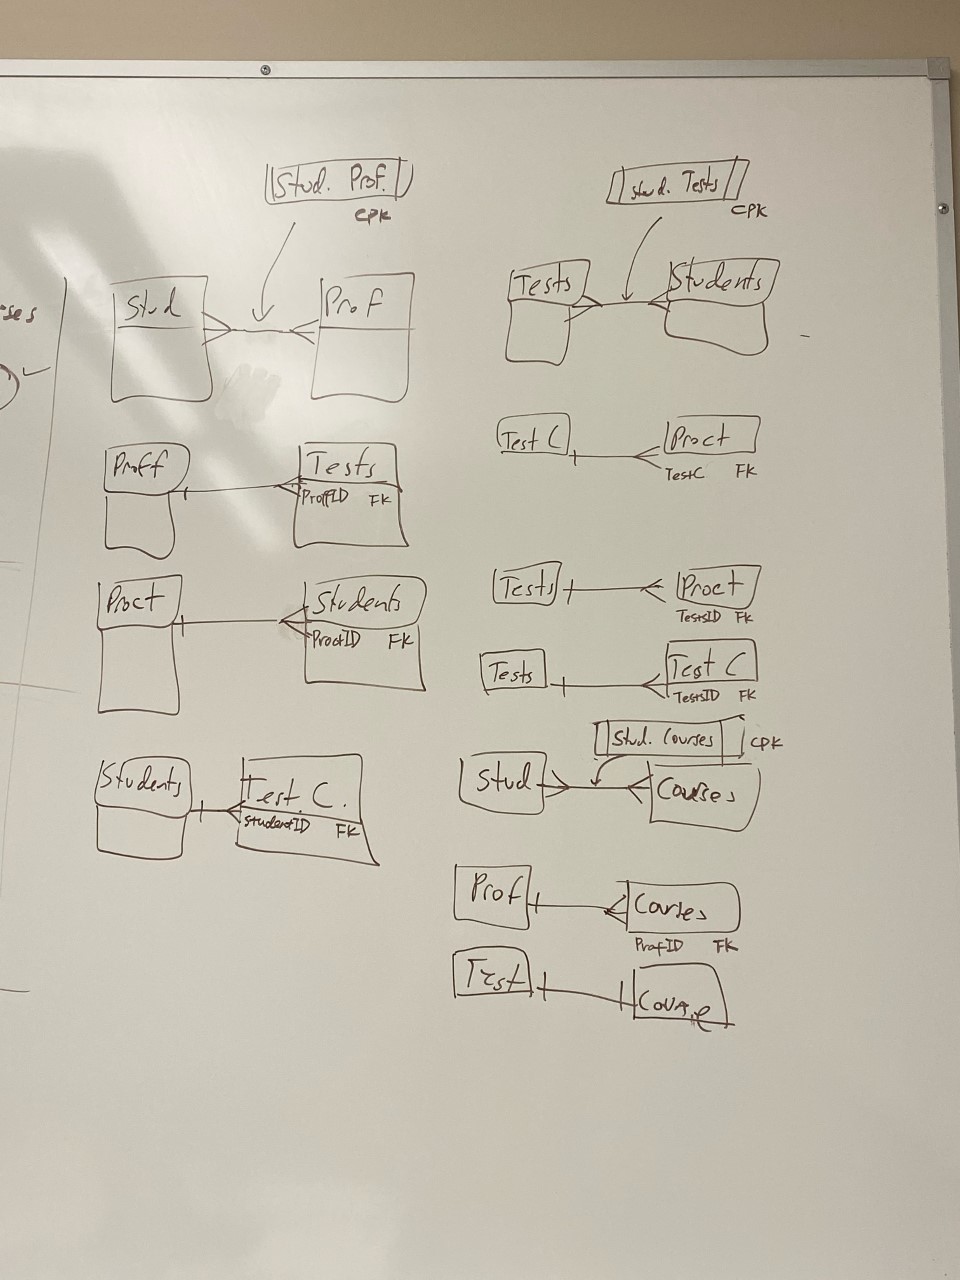 Stud. Prof.
CPK
Stud
Prof
Proff
Tests
ProffID FK
Proct
Students
ProctID FK
Students
Test. C.
StudentID FK
Stud. Tests
CPK
Tests
Students
Test C
Proct
TestC FK
Tests
Proct
TestsID FK
Tests
Test C
TestsID FK
Stud. Courses
CPK
Stud
Courses
Prof
Courses
ProfID FK
Test
Course